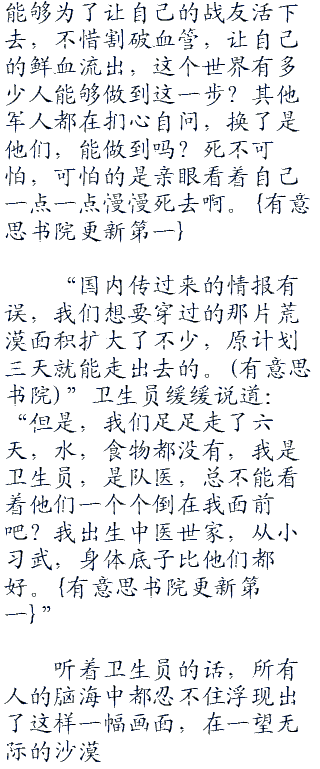 能够为了让自己的战友活下
去，不惜割破血管，让自己
的鲜血流出，这个世界有多
少人能够做到这一步？其他
军人都在扪心自问，换了是
他们，能做到吗？死不可
怕，可怕的是亲眼看着自己
一点一点慢慢死去啊。{有意
思书院更新第一}
“国内传过来的情报有
误，我们想要穿过的那片荒
漠面积扩大了不少，原计划
三天就能走出去的。(有意思
书院)”卫生员缓缓说道：
“但是，我们足足走了六
天，水，食物都没有，我是
卫生员，是队医，总不能看
着他们一个个倒在我面前
吧？我出生中医世家，从小
习武，身体底子比他们都
好。{有意思书院更新第
一}”
听着卫生员的话，所有
人的脑海中都忍不住浮现出
了这样一幅画面，在一望无
际的沙漠